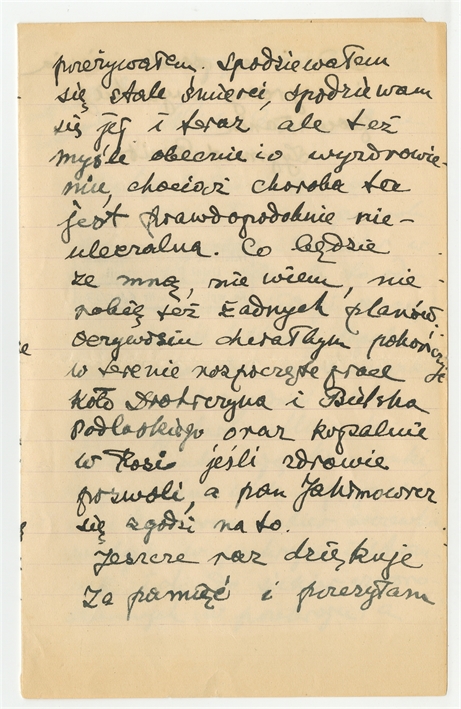 przeżywałem. Spodziewałem
się stale śmierci, spodziewam
się jej i teraz ale też
myślę obecnie i o wyzdrowie-
niu, chociaż choroba ta
jest prawdopodobnie nie-
uleczalna. Co będzie
ze mną, nie wiem, nie
robię też żadnych planów.
Oczywiście chciałbym pokończyć
w terenie rozpoczęte prace
koło Drohiczyna i Bielska
Podlaskiego oraz kopalnie
w jeśli zdrowie
pozwoli, a pan Jakimowicz
się zgodzi na to.
Jeszcze raz dziękuję
za pamięć i przesyłam